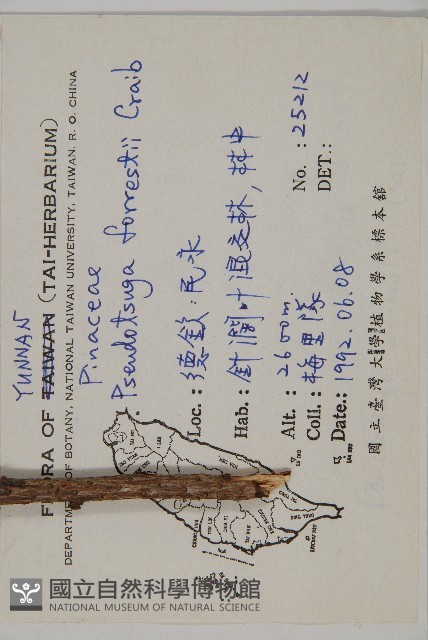 YUNNAN
FLORA OF TAIWAN (TAI-HERBARIUM)
DEPARTMENT OF BOTANY, NATIONAL TAIWAN UNIVERSITY, TAIWAN, R. O. CHINA
Pinaceae
Pseudotsuga forrestii Craib
Loc.: 德欽.民永
Hab.: 針闊叶混交林, 林中
Alt.: 2600m. No.: 25212
Coll.: 梅里隊 DET.:
Date.: 1992.06.08
國立臺灣大學植物學系標本館
國立自然科學博物館
NATIONAL MUSEUM OF NATURAL SCIENCE